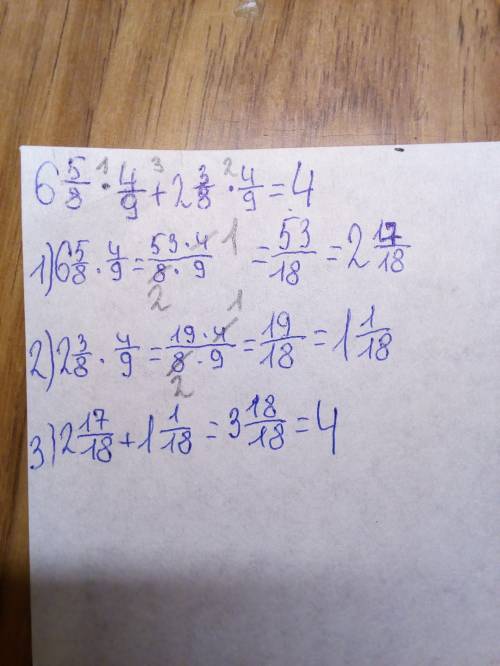 6 5/8 ·¹ 4/9 +³ 2 3/8 ·² 4/9 = 4
1) 6 5/8 · 4/9 = 53 · 4 1 / 8 · 9 2 = 53/18 = 2 17/18
2) 2 3/8 · 4/9 = 19 · 4 1 / 8 · 9 2 = 19/18 = 1 1/18
3) 2 17/18 + 1 1/18 = 3 18/18 = 4